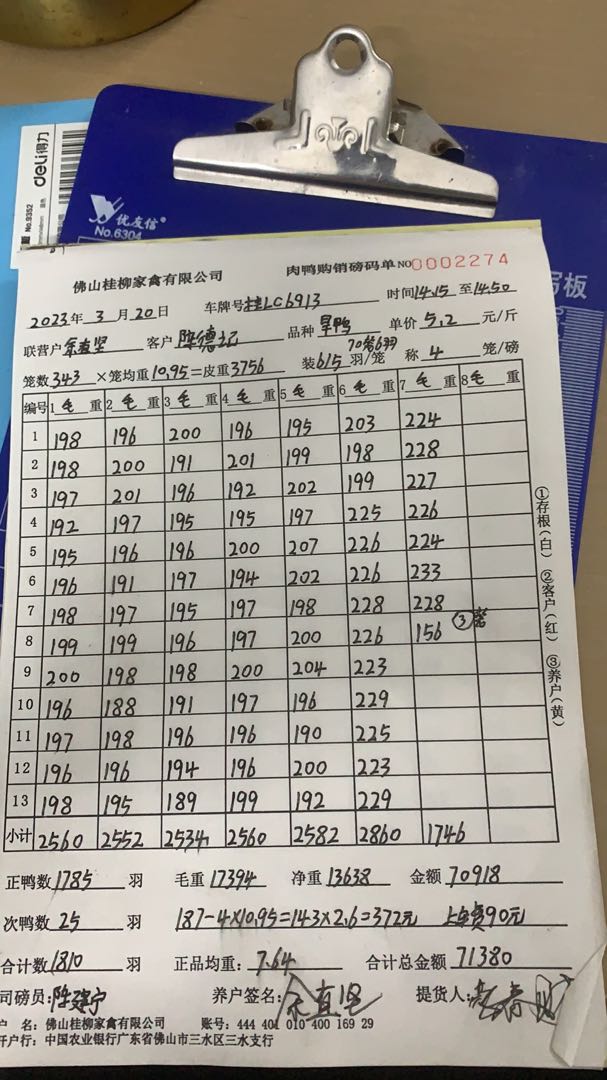 deli得力
No.9352
优友信
No.6304
写板
佛山桂柳家禽有限公司 肉鸭购销磅码单 NO 0002274
2023年3月20日 车牌号 桂LC6913 时间14.15至14.50
联营户 客户 陈德记 品种 旱鸭 单价5.2元/斤
70笼6羽
笼数343×笼均重10.95=皮重3756 装6/5羽/笼 称4笼/磅
编号 1毛重 2毛重 3毛重 4毛重 5毛重 6毛重 7毛重 8毛重
1 198 196 200 196 195 203 224
2 198 200 191 201 199 198 228
3 197 201 196 192 202 199 227
4 192 197 195 195 197 225 226
5 195 196 196 200 207 226 224
6 196 191 197 194 202 226 233
7 198 197 195 197 198 228 228
8 199 199 196 197 200 226 156 ③笼
9 200 198 198 200 204 223
10 196 188 191 197 196 229
11 197 198 196 196 190 225
12 196 196 194 196 200 223
13 198 195 189 199 192 229
小计 2560 2552 2534 2560 2582 2860 1746
①存根(白)②客户(红)③养户(黄)
正鸭数1785羽 毛重17394 净重13638 金额70918
次鸭数25羽 187-4×10.95=143×2.6=372元 上车费90元
合计数1810羽 正品均重:7.64 合计总金额71380
司磅员:陈建宁 养户签名: 提货人:
户 名:佛山桂柳家禽有限公司 账号:444 401 010 400 169 29
开户行:中国农业银行广东省佛山市三水区三水支行